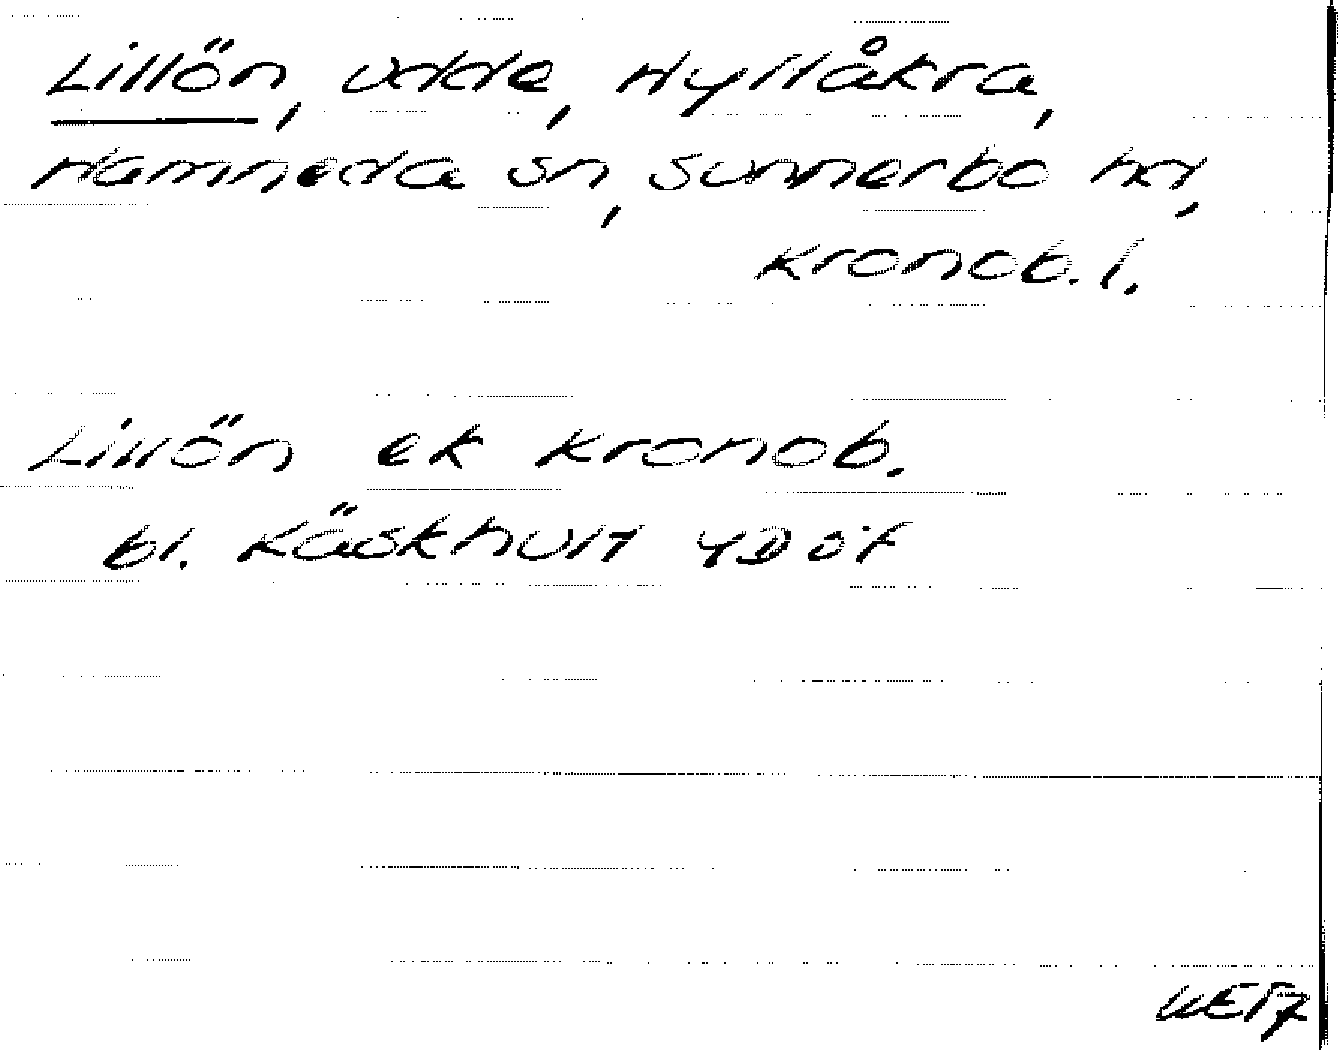 Lillön, udde, Hyltåkra,
Hamneda sn, Sunnerbo hd,
Kronob. l.
Lillön ek Kronob.
bl. Käskhult 4D öf